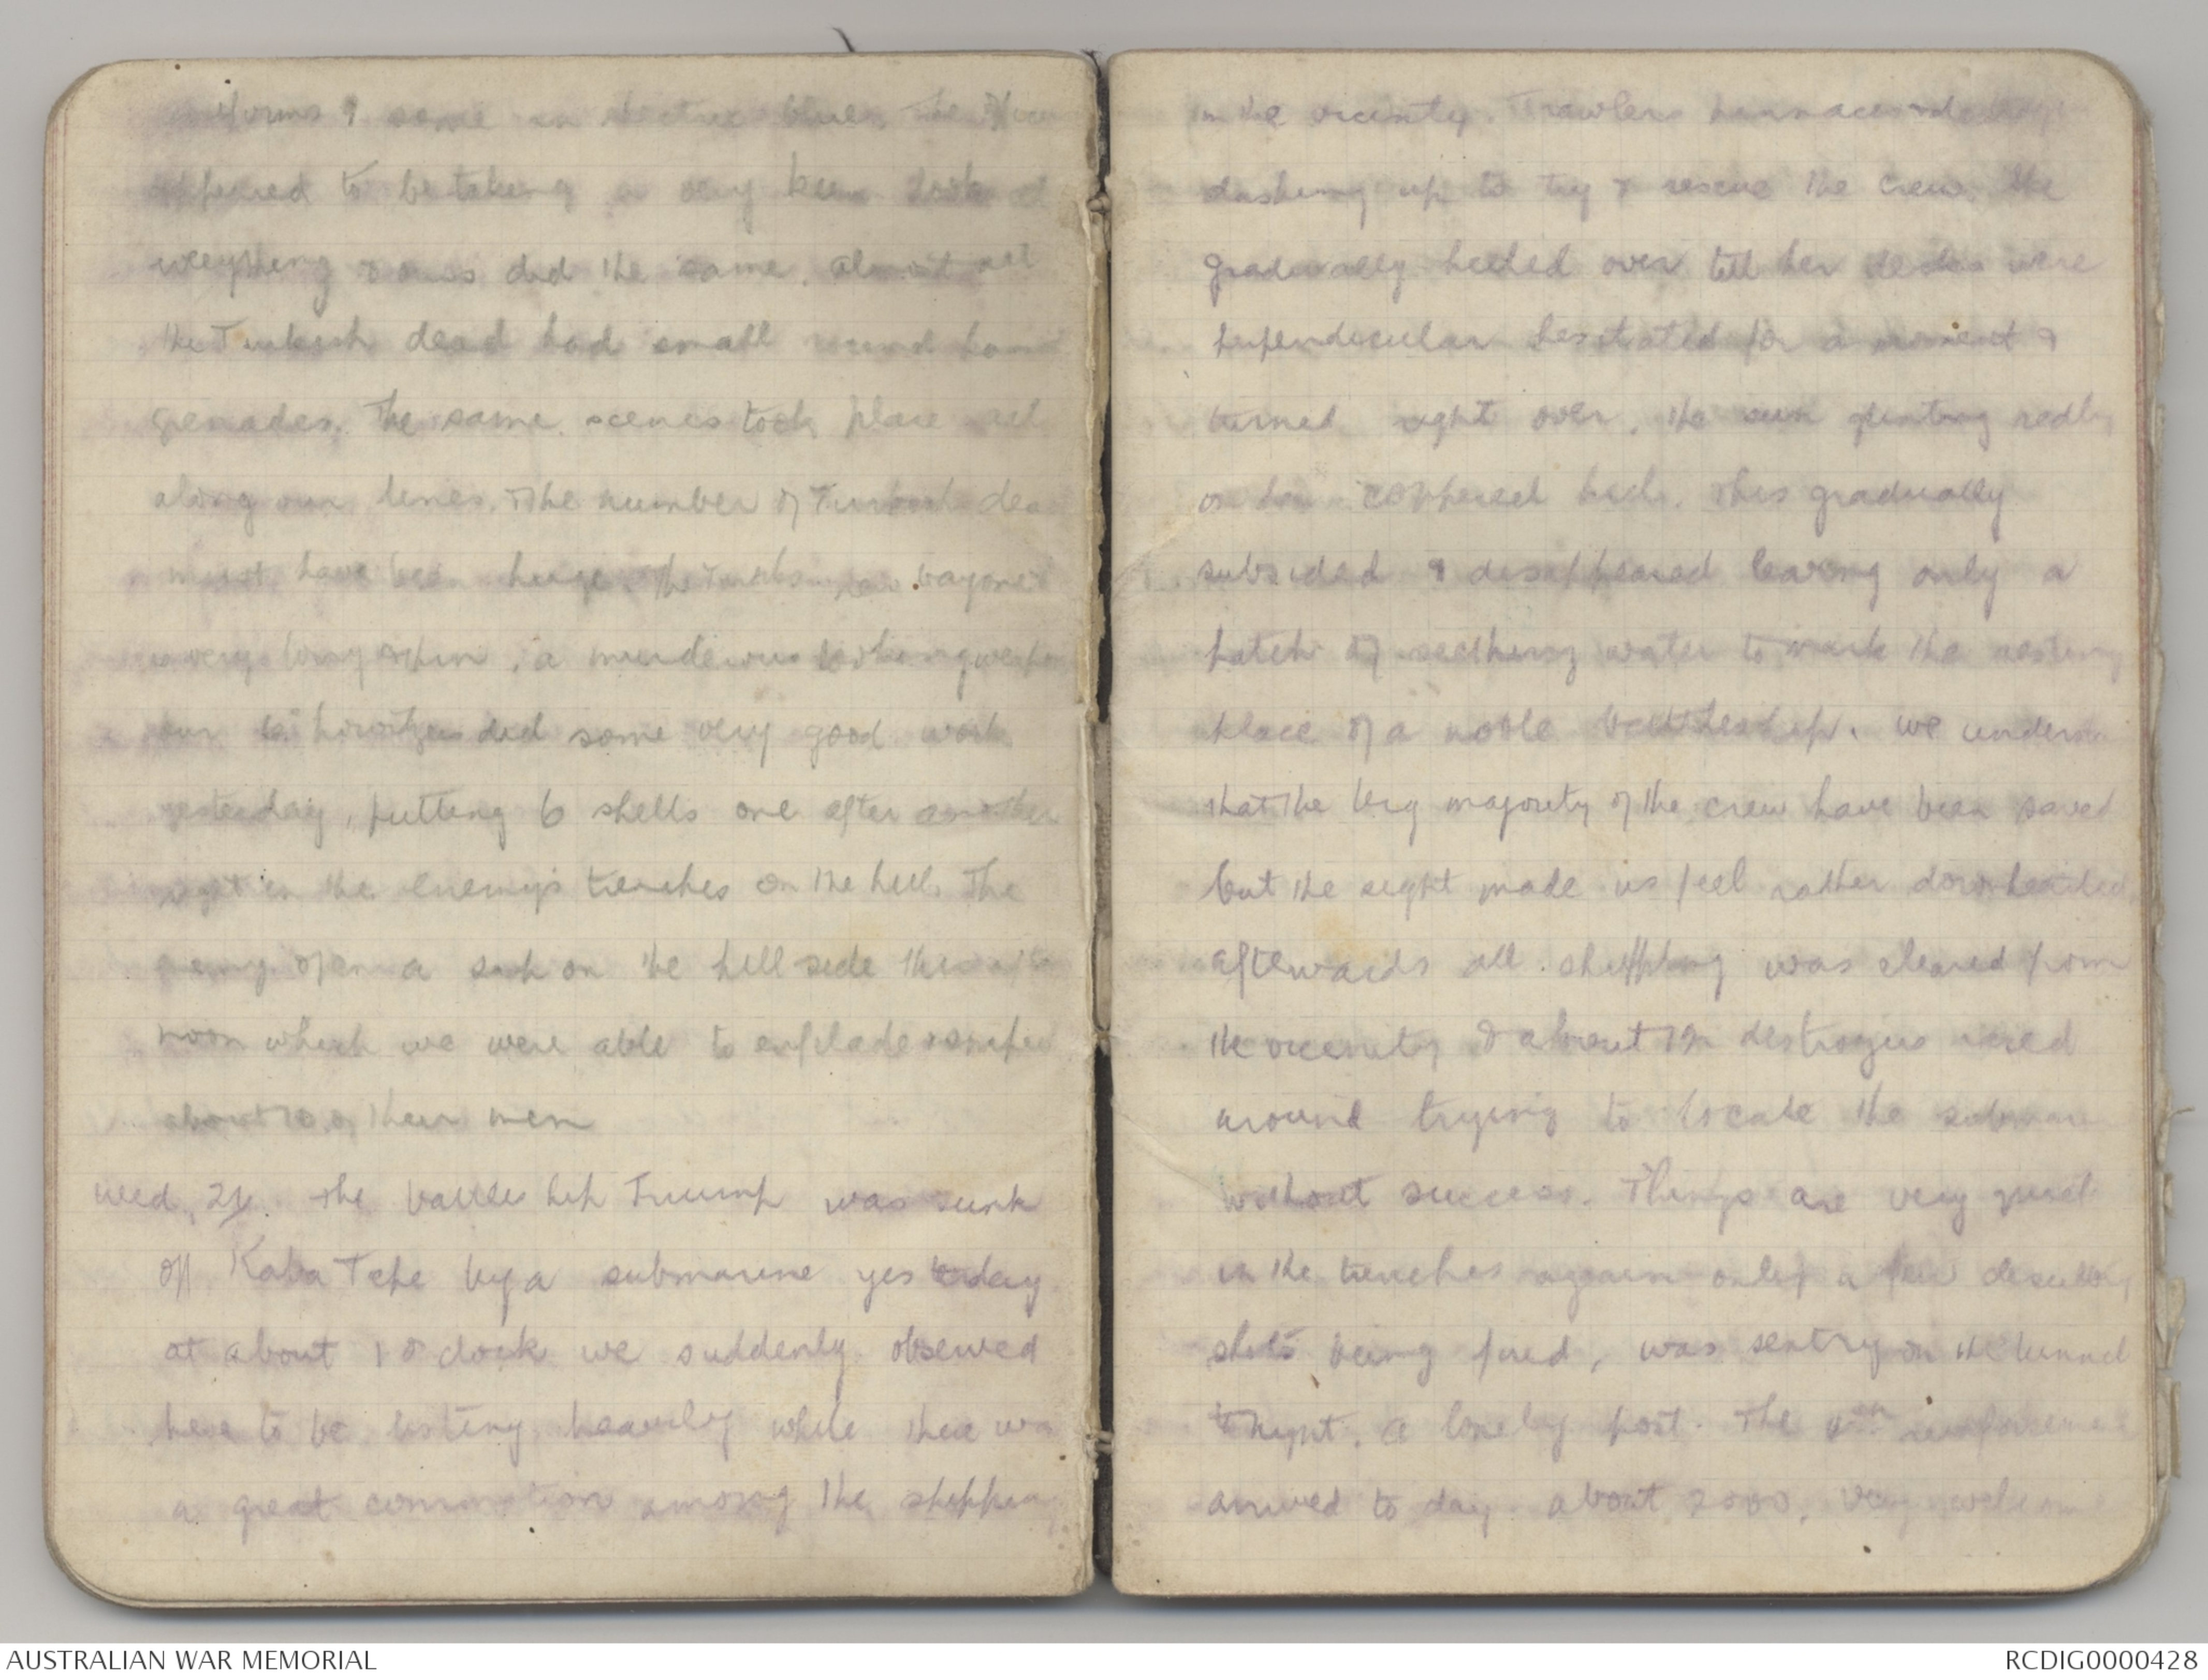 uniforms & some in electric blue. The
appeared to be taking a very keen look
everything & ours did the same. Almost all
the Turkish dead had small round
grenades. The same scenes took place all
along our lines. The number of Turkish
must have been huge. The Turks
a very long, a murderous looking
our 6 howitzers did some very good work
yesterday, putting 6 shells one after another
right in the enemy's trenches on the hill. The
enemy open a sap on the hill side this
noon which we were able to enfilade &
about of their men
Wed, 26. The battleship Triumph was sunk
off Kaba Tepe by a submarine yesterday
at about 1 o clock we suddenly observed
here to be listing heavily while there
a great commotion among the
in the vicinity. Trawlers
dashing up to try & rescue the crew. She
gradually heeled over till her decks were
perpendicular hesitated for a moment &
turned right over, the sun glinting redly
on her coppered hull. This gradually
subsided & disappeared leaving only a
patch of seething water to mark the resting
place of a noble battleship. We
that the big majority of the crew have been saved
but the sight made us feel rather downhearted
afterwards all shipping was cleared from
the vicinity & about 12 destroyers raced
around trying to locate the
without success. Things are very quiet
in the trenches again only a few desultory
shots being fired, was sentry on the tunnel
to night, a lonely post. The
arrived to day about 2000, very welcome
AUSTRALIAN WAR MEMORIAL
RCDIG0000428